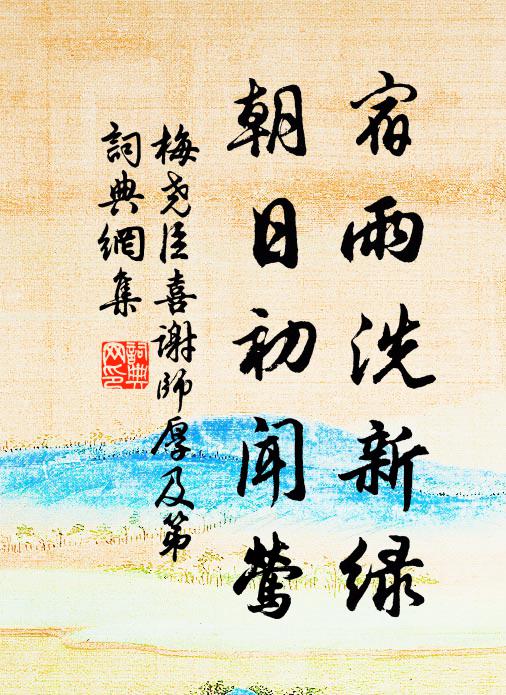 宿雨洗新绿
朝日初闻莺
梅尧臣喜谢师厚及第
詞典網集
詞典网印